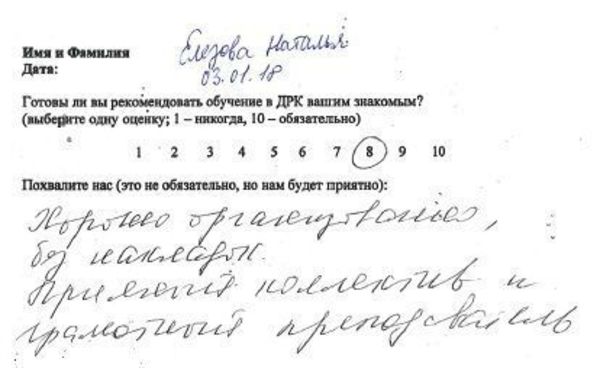 Имя и Фамилия Елезова Наталья
Дата: 03.01.18
Готовы ли вы рекомендовать обучение в ДРК вашим знакомым?
(выберите одну оценку; 1 – никогда, 10 – обязательно)
1 2 3 4 5 6 7 8 9 10
Похвалите нас (это не обязательно, но нам будет приятно):
Хорошо организовано,
без накладок.
Приятный коллектив и
грамотный преподаватель